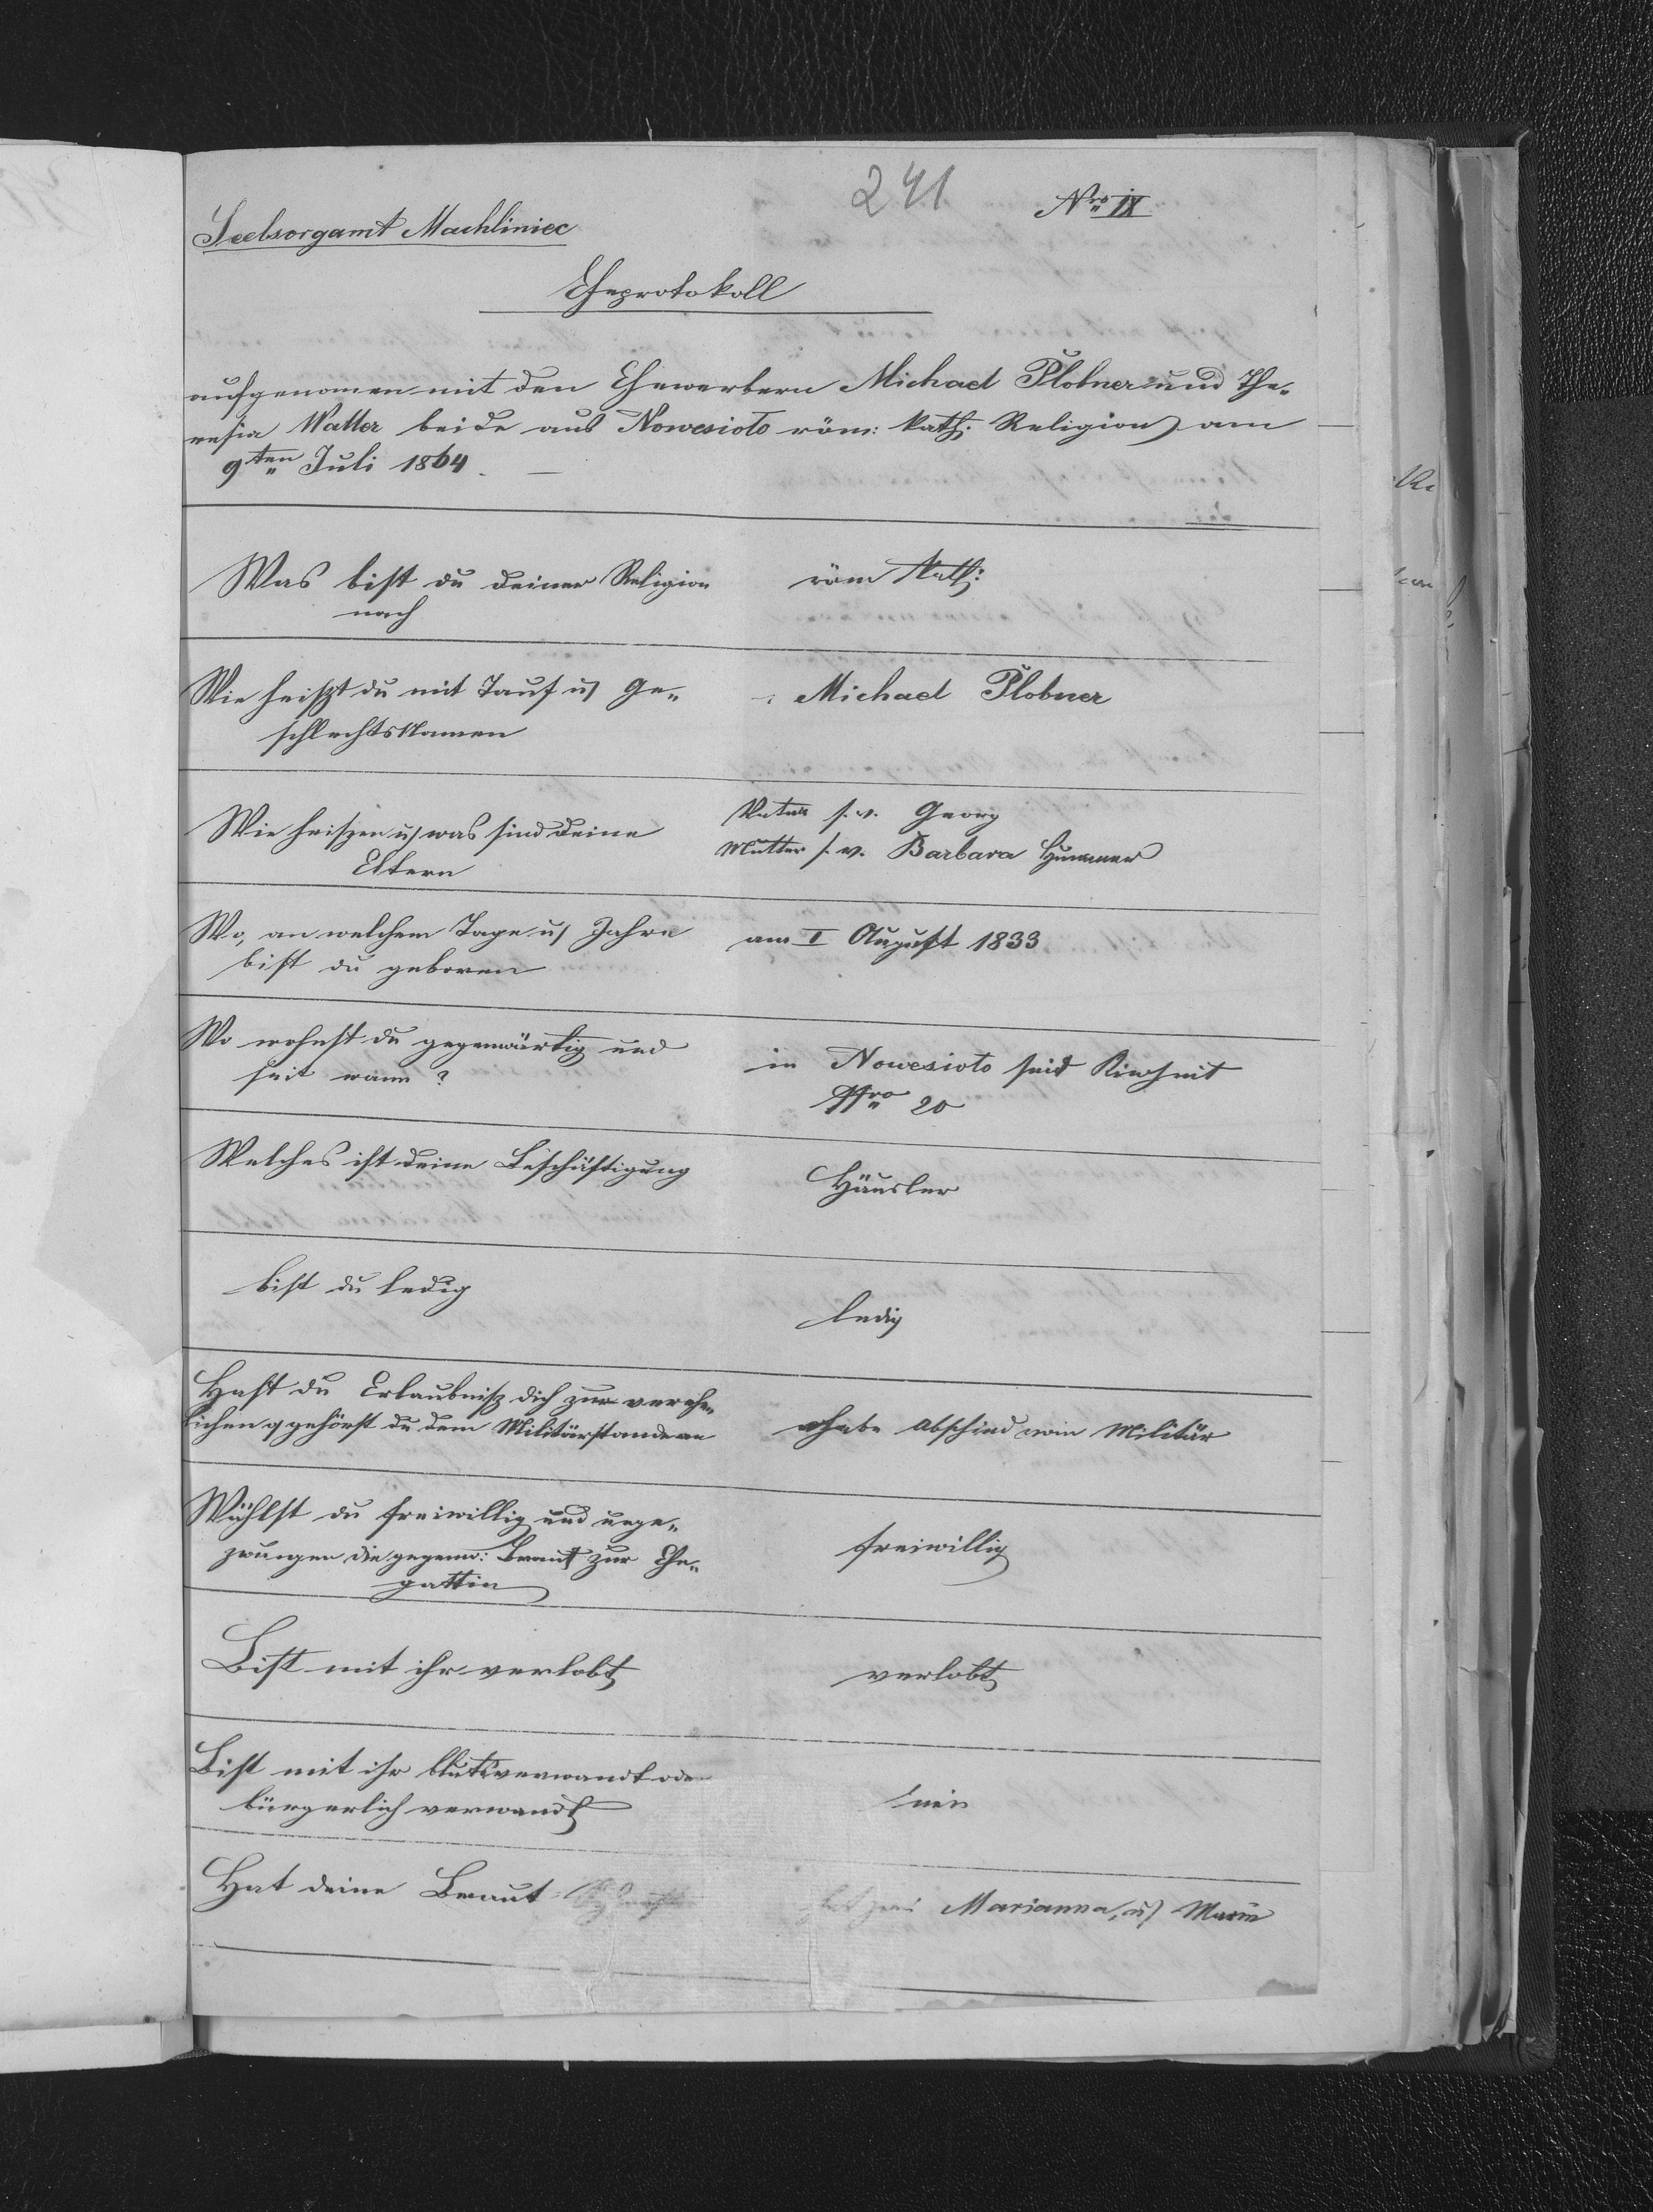 241
Nro IX
Seelsorgamt Machliniec
Eheprotokoll
aufgenomen mit den Ehewerbern Michael Plobner und The„
resia Walter beide aus Nowesioło röm: kath: Religion am
9ten Juli 1864.
Was bist du deiner Religion
nach
röm kath:
Wie heißt du mit Tauf u Ge„
schlechtsNamen
Michael Plobner
Wie heißen u was sind deine
Eltern
Vater f. v. Georg
Mutter f. v. Barbara
Wo, an welchem Tage u Jahre
bist du geboren
am I August 1833
Wo wohnst du gegenwärtig und
seit wann?
in Nowesioło seit Kindheit
Nro 20
Welches ist deine Beschäftigung
Häusler
bist du ledig
ledig
Hast du Erlaubniß dich zur verehe„
lichen gehörst du dem Militärstande an
habe Abschied Militär
Wählst du freiwillig und unge„
zwungen die gegenw: Braut zur Ehe„
gattin
freiwillig
Bist mit ihr verlobt
verlobt
Bist mit ihr blutsverwandt oder
bürgerlich verwandt
nein
Hat deine Braut
Marianna, u Maria